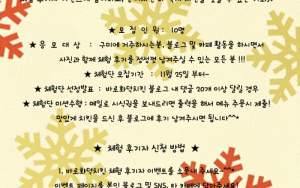 ★ 모 집 인 원 : 10명
★ 응 모 대 상 : 구미에 거주하시는분, 블로그 및 카페 활동을 하시면서
사진과 함께 체험 후기를 정성껏 남겨주실 수 있는 모든 분 !!!
★ 체험단 모집기간 : 11월 25일 부터~
★ 체험단 선정발표 : 바르화닭치킨 블로그 내 댓글 20개 이상 달릴 경우
★ 체험단 미션수행 : 메일로 시식권을 보내드리면 출력을 해서 매장 주문시 제출!
맛있게 치킨을 드신 후 블로그에 후기 남겨주시면 됩니다^^*
★ 체험 후기자 신청 방법 ★
1. 바르화닭치킨 체험 후기자 이벤트를 소문내 주세요~^^*
이벤트 페이지를 본인 블로그 및 SNS, 타 카페에 담아주세요!